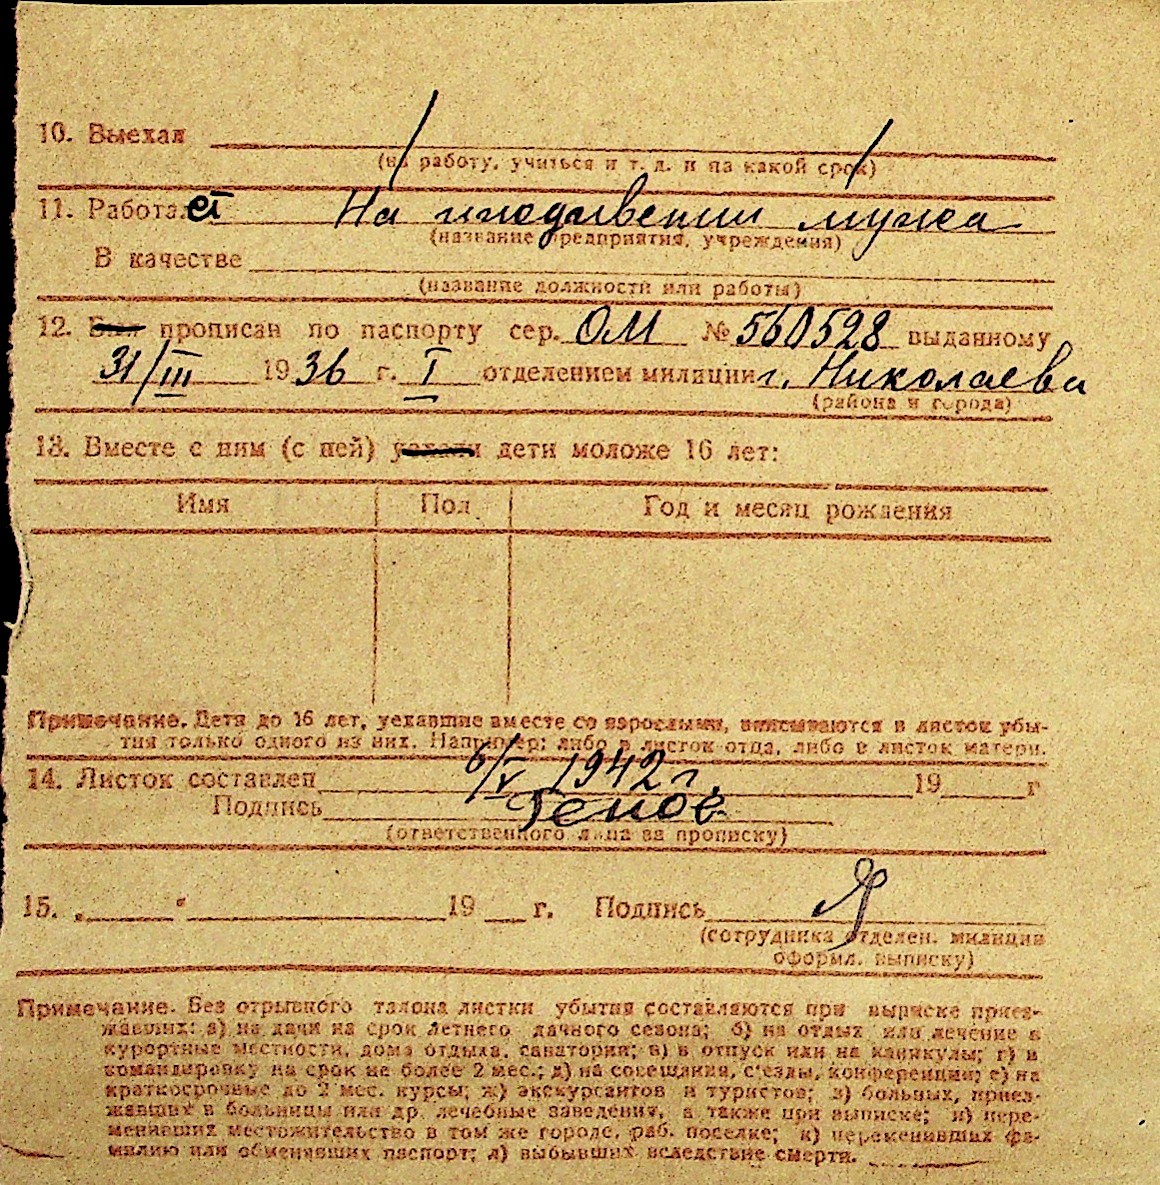 10. Выехал
(на работу, учиться и т. д. и на какой срок)
11. Работает На иждивении мужа
(название предприятия, учреждения)
В качестве
(название должности или работы)
12. Был прописан по паспорту сер. ОМ № 560528 выданному
31/III 1936 г. I отделением милиции г. Николаева
(района и города)
13. Вместе с ним (с ней) уехали дети моложе 16 лет:
Имя Пол Год и месяц рождения
Примечание. Дети до 16 лет, уехавшие вместе со взрослыми, вписываются в листок убы-
тия только одного из них. Например: либо в листок отца, либо в листок матери.
14. Листок составлен 6/V 1942 г. 19 г
Подпись
(ответственного лица за прописку)
15. „ " 19 г. Подпись
(сотрудника отделен. милиции
оформл. выписку)
Примечание. Без отрывного талона листки убытия составляются при выписке приез-
жавших: а) на дачи на срок летнего дачного сезона; б) на отдых или лечение в
курортные местности, дома отдыха, санатории; в) в отпуск или на каникулы; г) в
командировку на срок не более 2 мес.; д) на совещания, с'езды, конференции; е) на
краткосрочные до 2 мес. курсы; ж) экскурсантов и туристов; з) больных, приез-
жавших в больницы или др. лечебные заведения, а также при выписке; и) пере-
менивших местожительство в том же городе, раб. поселке; к) переменивших фа-
милию или обменявших паспорт; л) выбывших вследствие смерти.